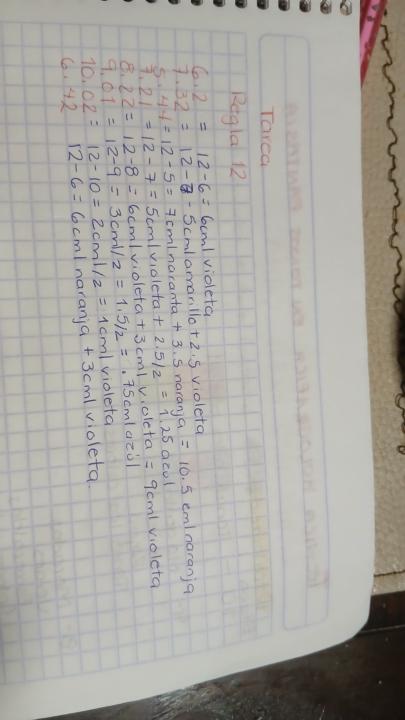 Tarea
Regla 12
6.2 = 12-6 = 6cml violeta
7.32 = 12-7 - 5cml amarillo + 2.5 violeta
5.44 = 12-5 = 7cml naranta + 3.5 naranja = 10.5 cml naranja
7.21 = 12-7 = 5cml violeta + 2.5/2 = 1.25 azul
8.22 = 12-8 = 6cml violeta + 3cml violeta = 9cml violeta
9.01 = 12-9 = 3cml/2 = 1.5/2 = .75cml azul
10.02 = 12-10 = 2cml/2 = 1cml violeta
6.42 12-6 = 6cml naranja + 3cml violeta.